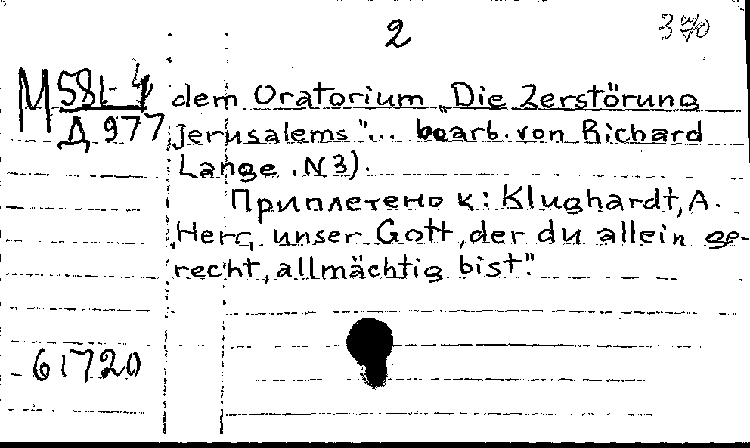 2
370
М 581-4
Д 977
dem Oratorium „Die Zerstörung
Jerusalems"... bearb. von Richard
Lange. N 3).
Приплетено к: Klughardt, A.
„Herr, unser Gott, der du allein ge-
recht, allmächtig bist".
61720